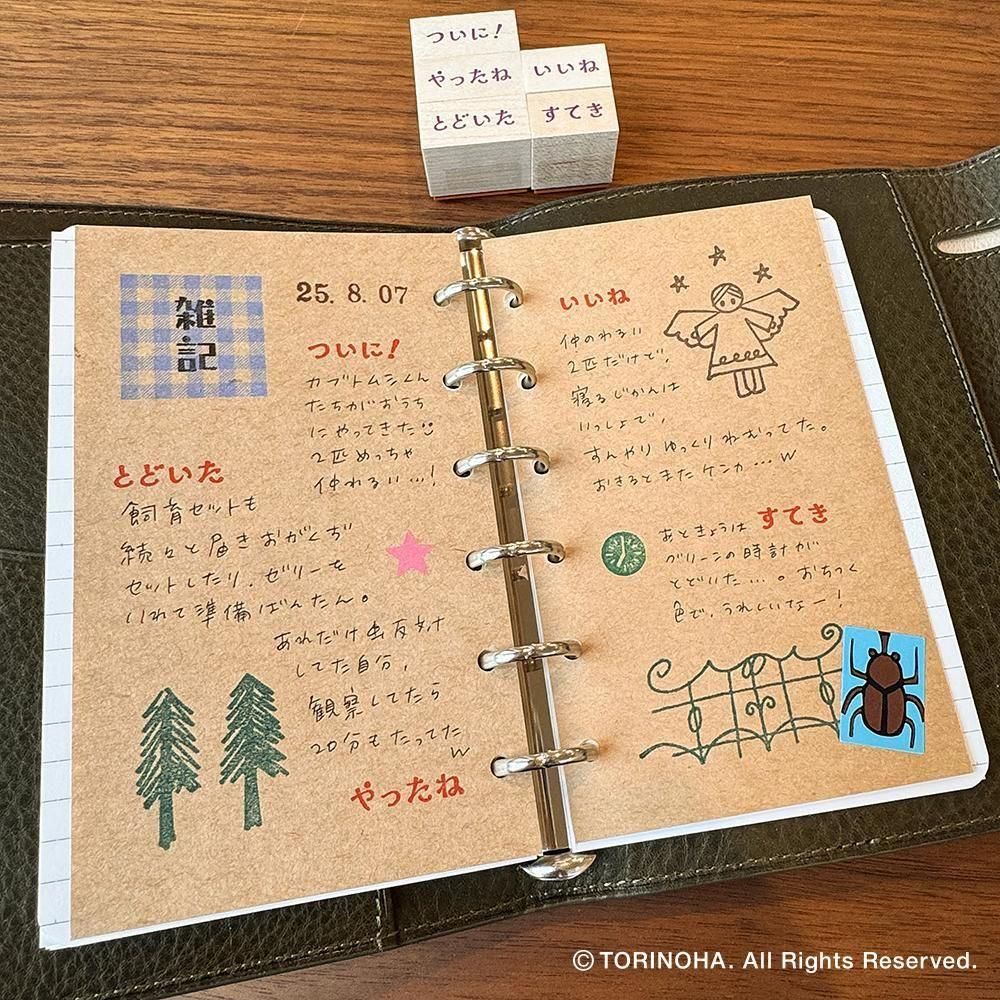 ついに!
やったね
いいね
とどいた
すてき
雑記
25. 8. 07
ついに!
カブトムシくん
たちがおうち
にやってきた
2匹めっちゃ
仲わるい…!
とどいた
飼育セットも
続々と届きおがくず
セットしたり、ゼリーを
いれて準備ばんたん。
あれだけ
してた自分、
観察してたら
20分もたってた
w
やったね
いいね
仲のわるい
2匹だけど、
寝るじかんは
いっしょで、
すんやりゆっくりねむってた。
おきるとまたケンカ…w
あときょうは すてき
グリーンの時計が
とどいた…。おちつく
色で、うれしいなー!
© TORINOHA. All Rights Reserved.